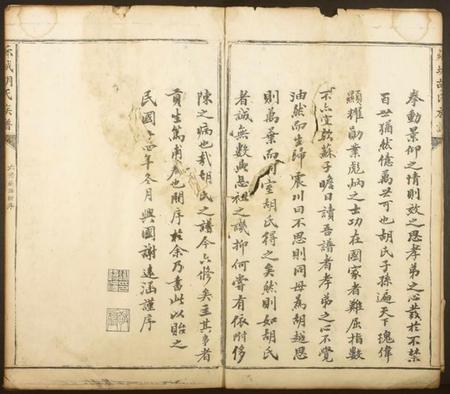 拳動景仰之情則效之思孝弟之心哉於不禁
百世猶然億萬世可也胡氏子孫遍天下瑰偉
顯耀勛業彪炳之士功在國家者難屈指數
不亦宜歟蘇子瞻曰讀吾譜者孝弟之心不覺
油然而生歸震川曰不思則同母為胡越思
則萬葉而同室胡氏得之矣然則如胡氏
者誠無數典忘祖之譏抑何嘗有依附侈
陳之病也哉胡氏之譜今六修矣主其事者
貢生篤甫君也開序於余乃書此以貽之
民國六年冬月興國謝遠涵謹序
胡氏族譜